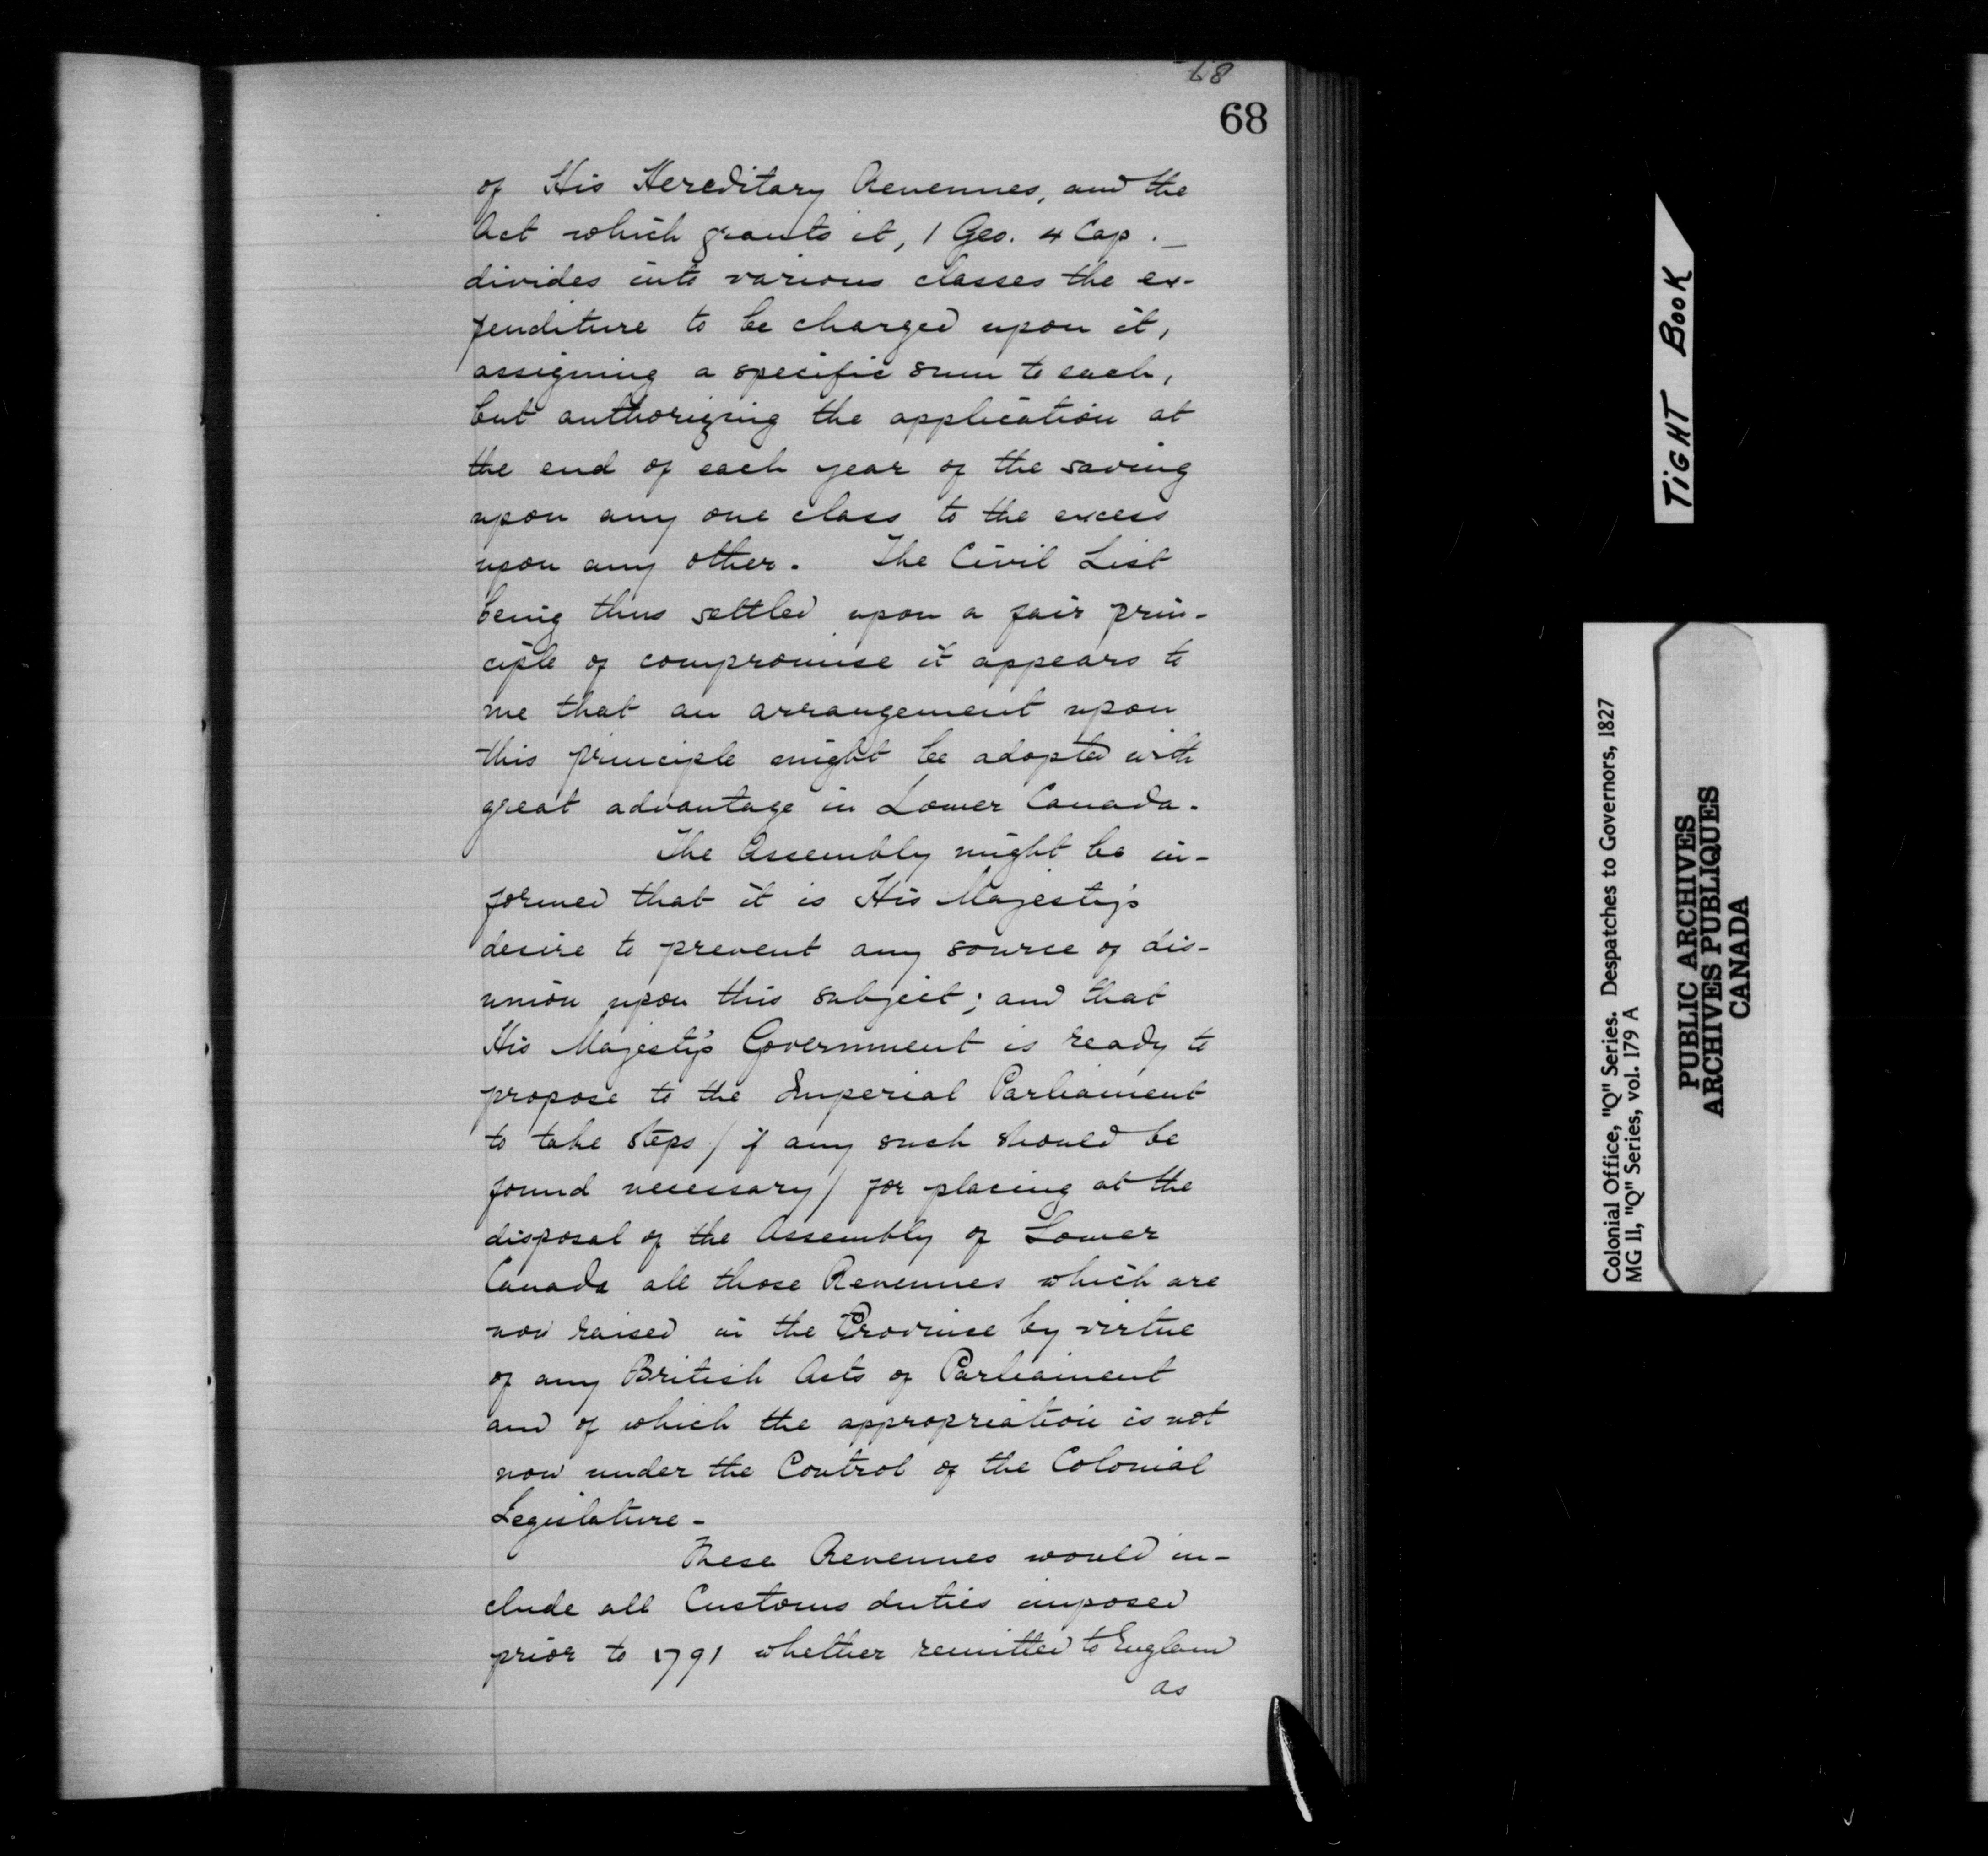 68
68
of His Hereditary Revenues, and the
Act which grants it, 1 Geo. 4 Cap. _
divides into various classes the ex-
penditure to be charged upon it,
assigning a specific sum to each,
but authorizing the application at
the end of each year of the saving
upon any one class to the excess
upon any other. The Civil List
being thus settled upon a fair prin-
ciple of compromise it appears to
me that an arrangement upon
this principle might be adopted with
great advantage in Lower Canada.
The Assembly might be in-
formed that it is His Majesty's
desire to prevent any source of dis-
union upon this subject; and that
His Majesty's Government is ready to
propose to the Imperial Parliament
to take steps / if any such should be
found necessary / for placing at the
disposal of the Assembly of Lower
Canada all those Revenues which are
now raised in the Province by virtue
of any British Acts of Parliament
and of which the appropriation is not
now under the Control of the Colonial
Legislature -
These Revenues would in-
clude all Customs duties imposed
prior to 1791 whether remitted to England
as
TiGHT BOOK
Colonial Office, "Q" Series. Despatches to Governors, 1827
MG 11, "Q" Series, vol. 179 A
PUBLIC ARCHIVES
ARCHIVES PUBLIQUES
CANADA